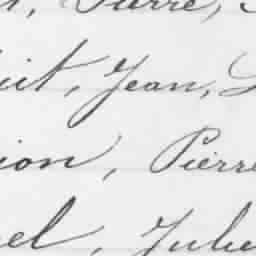 , Pierre,
uit, Jean,
ion, Pierre
el, Julie